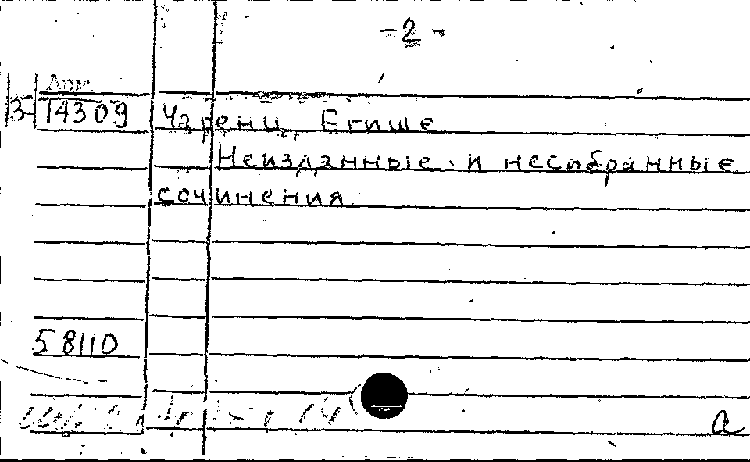 - 2 -
Арм
3-14309 Чаренц, Егише
Неизданные и несобранные
сочинения
58110
а